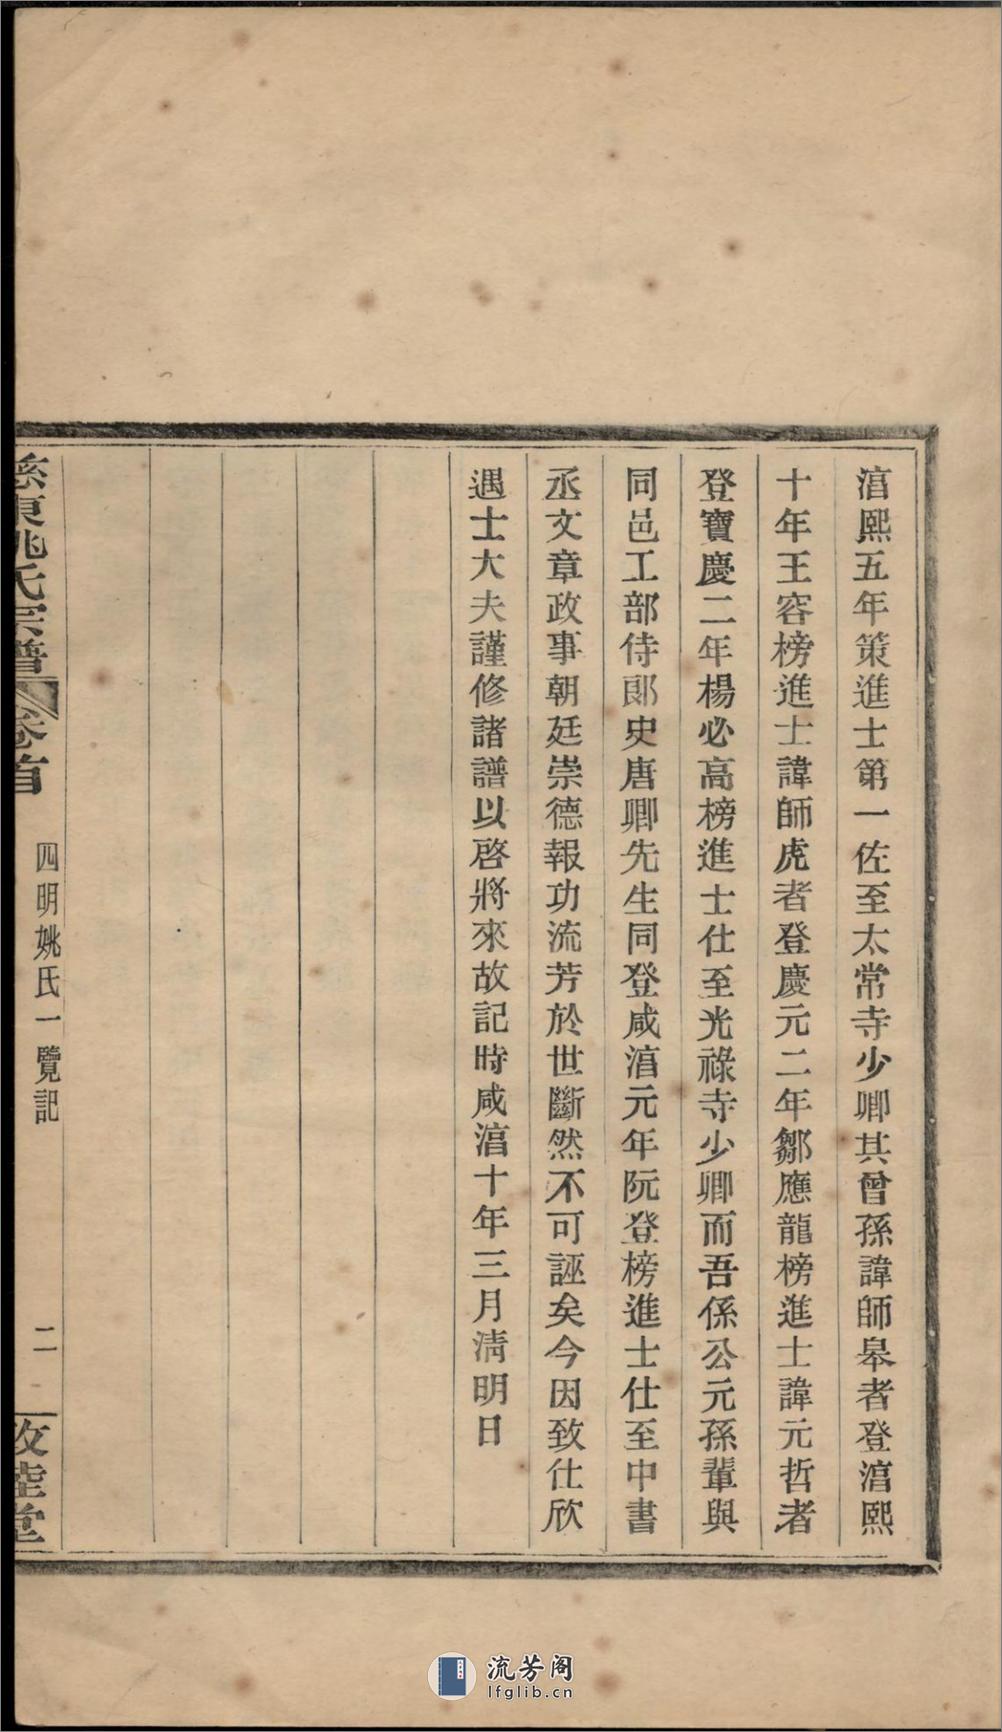 淯熙五年策進士第一佐至太常寺少卿其曾孫諱師皋者登淯熙
十年王容榜進士諱師虎者登慶元二年鄒應龍榜進士諱元哲者
登寶慶二年楊必高榜進士仕至光祿寺少卿而吾係公元孫輩與
同邑工部侍郞史唐卿先生同登咸淯元年阮登榜進士仕至中書
丞文章政事朝廷崇德報功流芳於世斷然不可誣矣今因致仕欣
遇士大夫謹修諸譜以啓將來故記時咸淯十年三月淸明日
慈東姚氏宗譜 卷首 四明姚氏一覽記 二 敦睦堂
流芳阁
lfglib.cn